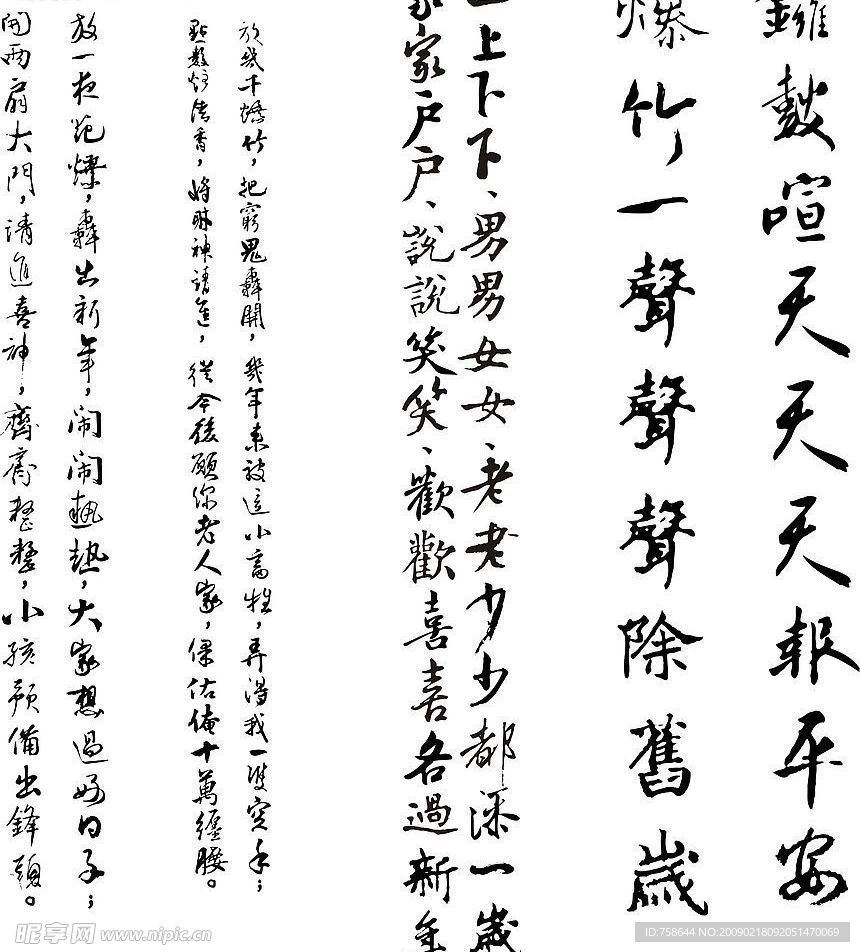 鑼鼓喧天天天報平安
爆竹一聲聲聲除舊歲
上上下下、男男女女、老老少少都添一歲
家家戶戶、說說笑笑、歡歡喜喜各過新年
放幾千爆竹，把窮鬼轟開，幾年來被這小畜牲，弄得我一雙空手；
點數炷清香，將財神請進，從今後願你老人家，保佑俺十萬纏腰。
放一夜花爆，轟出新年，闹闹熱熱，大家想過好日子；
開兩扇大門，請進喜神，齊齊整整，小孩預備出鋒頭。
昵享网 www.nipic.cn
ID:758644 NO:20090218092051470069